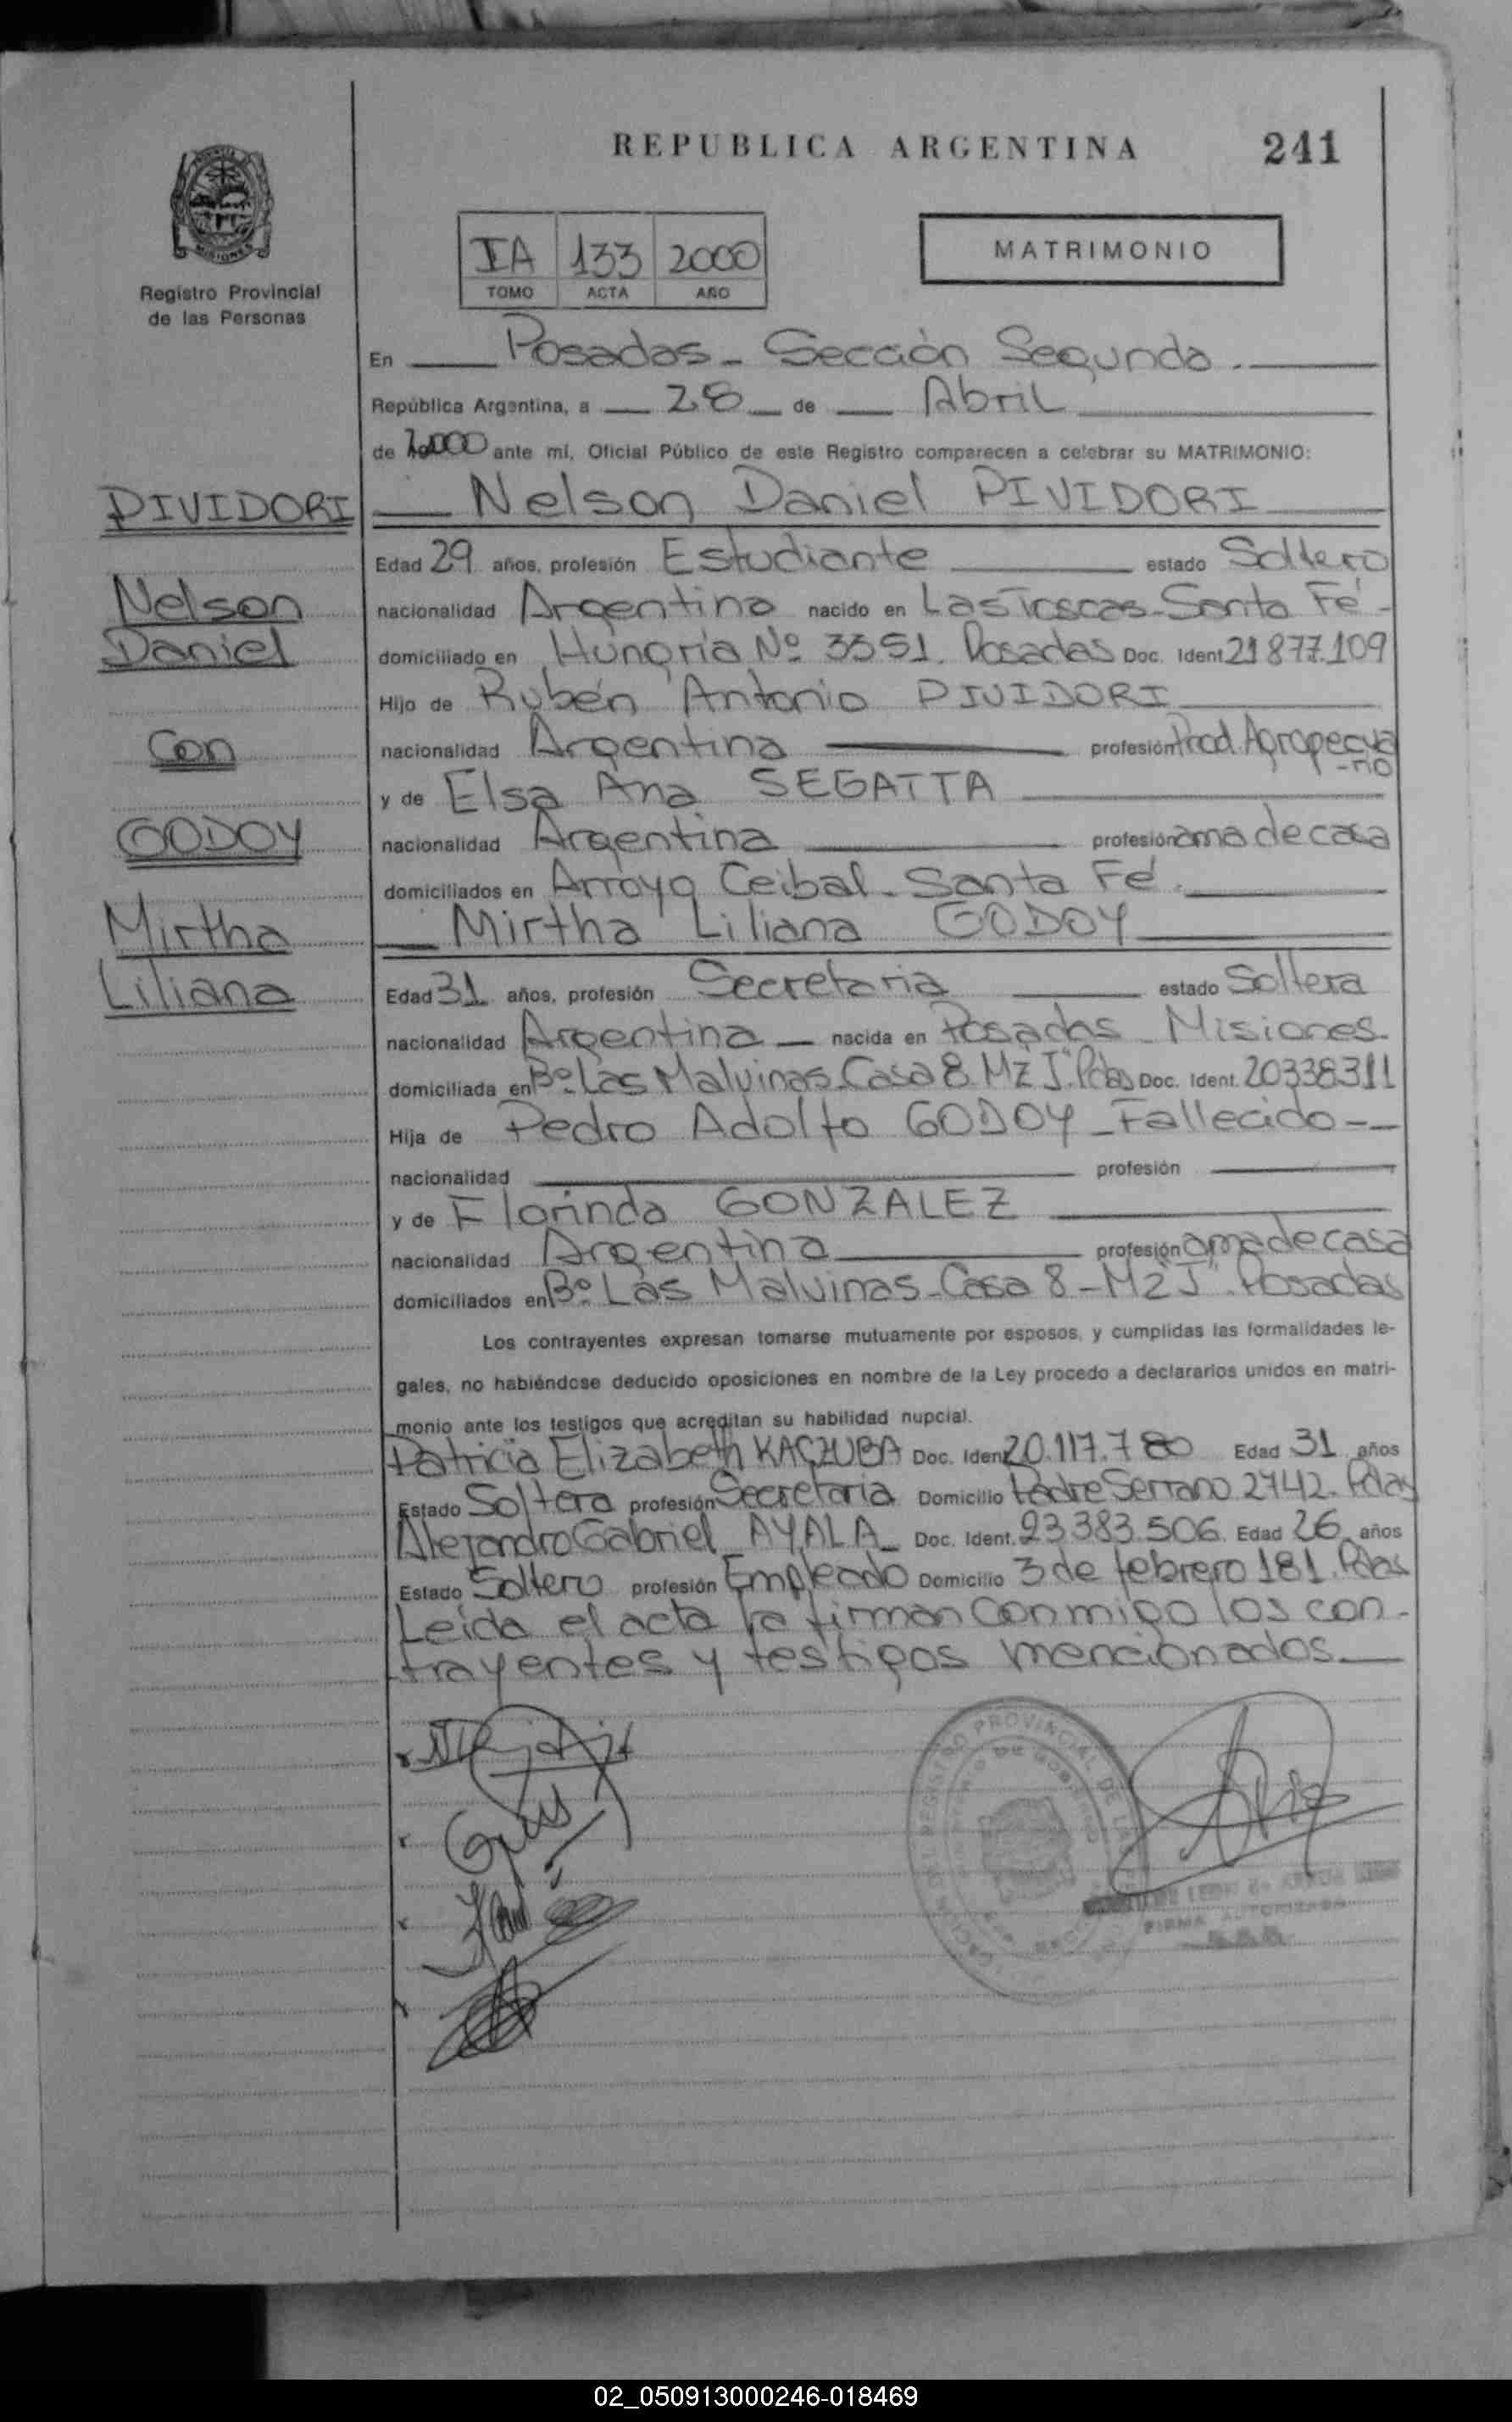 REPUBLICA ARGENTINA
241
MISIONES
Registro Provincial
de las Personas
IA 133 2000
TOMO ACTA AÑO
MATRIMONIO
En Posadas - Sección Segunda.
República Argentina, a 28 de Abril
de 2.000 ante mí, Oficial Público de este Registro comparecen a celebrar su MATRIMONIO:
PIVIDORI
Nelson
Daniel
Con
GODOY
Mirtha
Liliana
Nelson Daniel PIVIDORI
Edad 29 años, profesión Estudiante estado Soltero
nacionalidad Argentino nacido en Las Toscas - Santa Fé -
domiciliado en Hungría Nº 3351. Posadas Doc. Ident 21877.109
Hijo de Rubén Antonio PIVIDORI
nacionalidad Argentina profesión Prod. Agropecua
-rio
y de Elsa Ana SEGATTA
nacionalidad Argentina profesión ama de casa
domiciliados en Arroyo Ceibal - Santa Fé.
Mirtha Liliana GODOY
Edad 31 años, profesión Secretaria estado Soltera
nacionalidad Argentina nacida en Posadas - Misiones -
domiciliada en Bº Las Malvinas - Casa 8 Mz "J". Pdas Doc. Ident. 20338311
Hija de Pedro Adolfo GODOY - Fallecido -
nacionalidad profesión
y de Florinda GONZALEZ
nacionalidad Argentina profesión ama de casa
domiciliados en Bº Las Malvinas - Casa 8 - Mz "J". Posadas
Los contrayentes expresan tomarse mutuamente por esposos, y cumplidas las formalidades le-
gales, no habiéndose deducido oposiciones en nombre de la Ley procedo a declararlos unidos en matri-
monio ante los testigos que acreditan su habilidad nupcial.
Patricia Elizabeth KACZUBA Doc. Ident 20.117.780 Edad 31 años
Estado Soltera profesión Secretaria Domicilio Padre Serrano 2742. Pdas
Alejandro Gabriel AYALA Doc. Ident. 23.383.506. Edad 26 años
Estado Soltero profesión Empleado Domicilio 3 de febrero 181. Pdas
Leída el acta la firman conmigo los con-
trayentes y testigos mencionados.
REGISTRO PROVINCIAL DE LAS
FIRMA AUTORIZADA
02_050913000246-018469